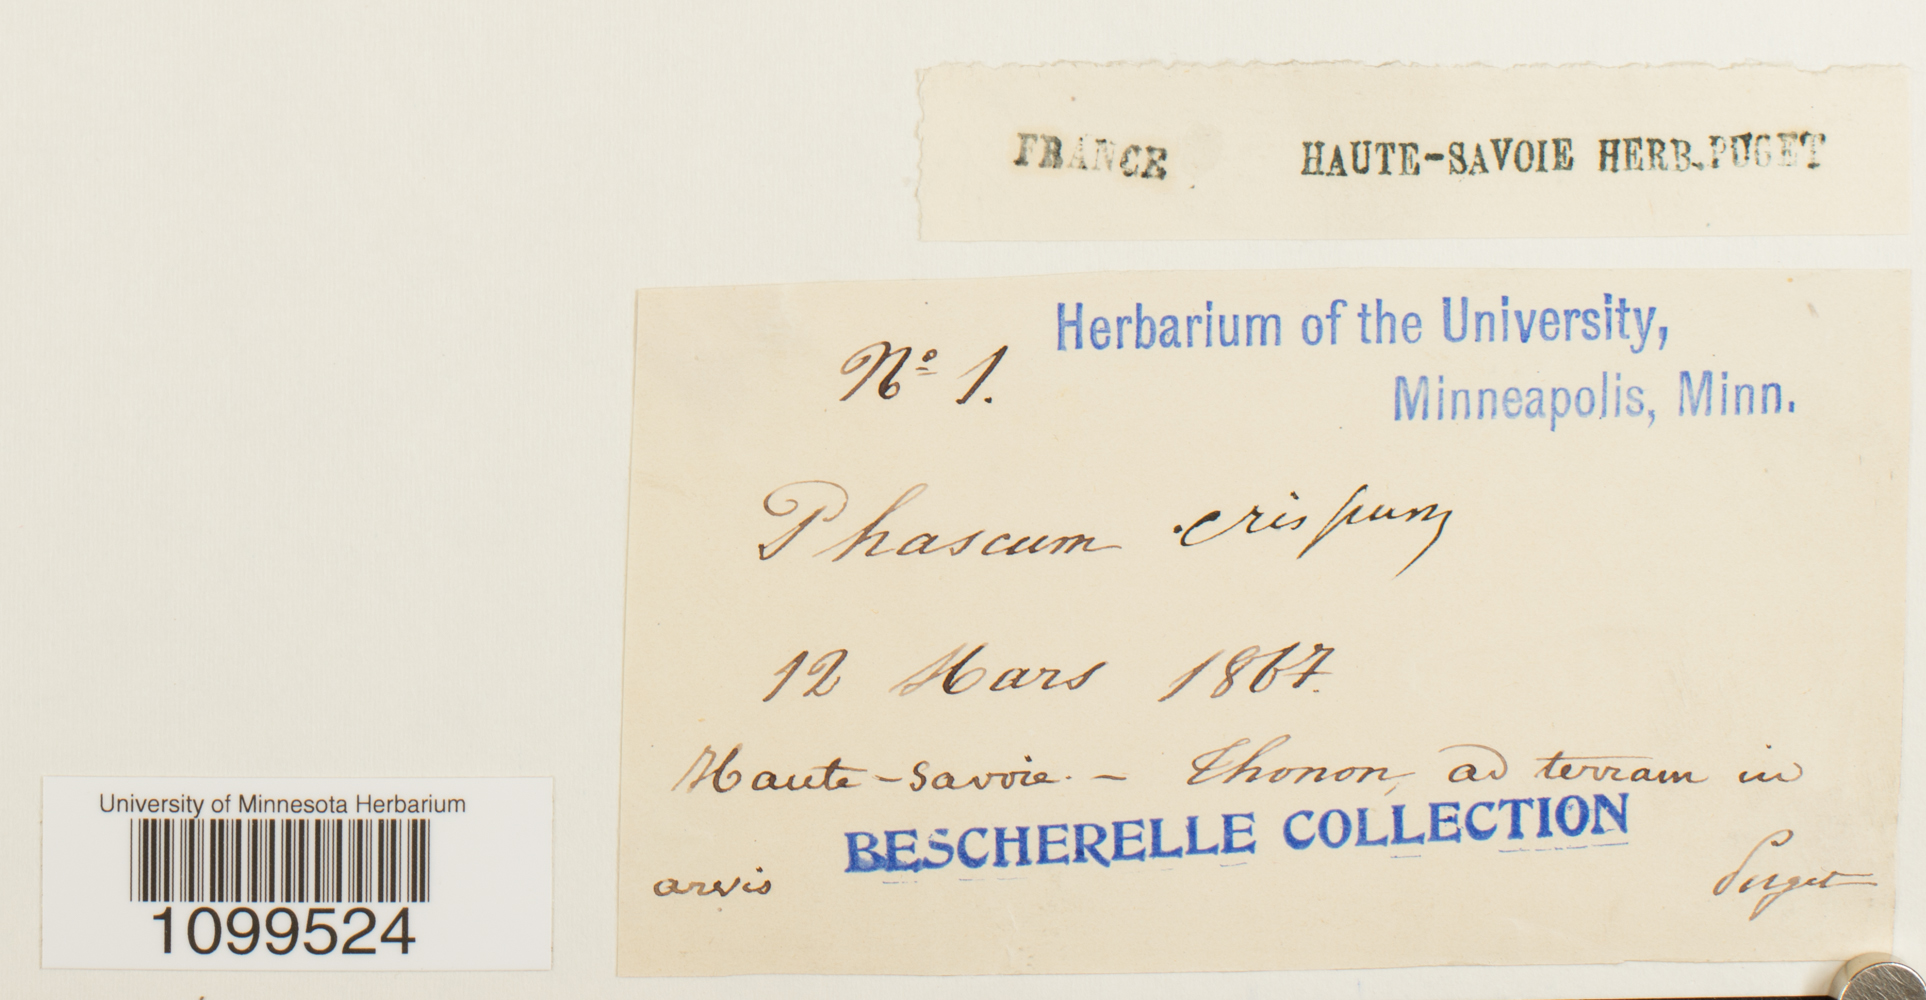 FRANCE HAUTE-SAVOIE HERB. PUGET
Herbarium of the University,
Minneapolis, Minn.
Nº 1.
Phascum crispum
12 Mars 1867.
Haute-Savoie. – Thonon, ad terram in
arvis
BESCHERELLE COLLECTION
Puget
University of Minnesota Herbarium
1099524